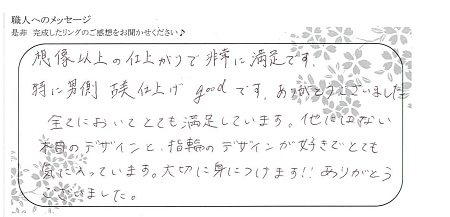 職人へのメッセージ
是非 完成したリングのご感想をお聞かせください♪
想像以上の仕上がりで非常に満足です。
特に男側 仕上げ goodです。ありがとうございました
全てにおいてとても満足しています。他にはない
木目のデザインと、指輪のデザインが好きでとても
気に入っています。大切に身につけます!! ありがとう
ございました。